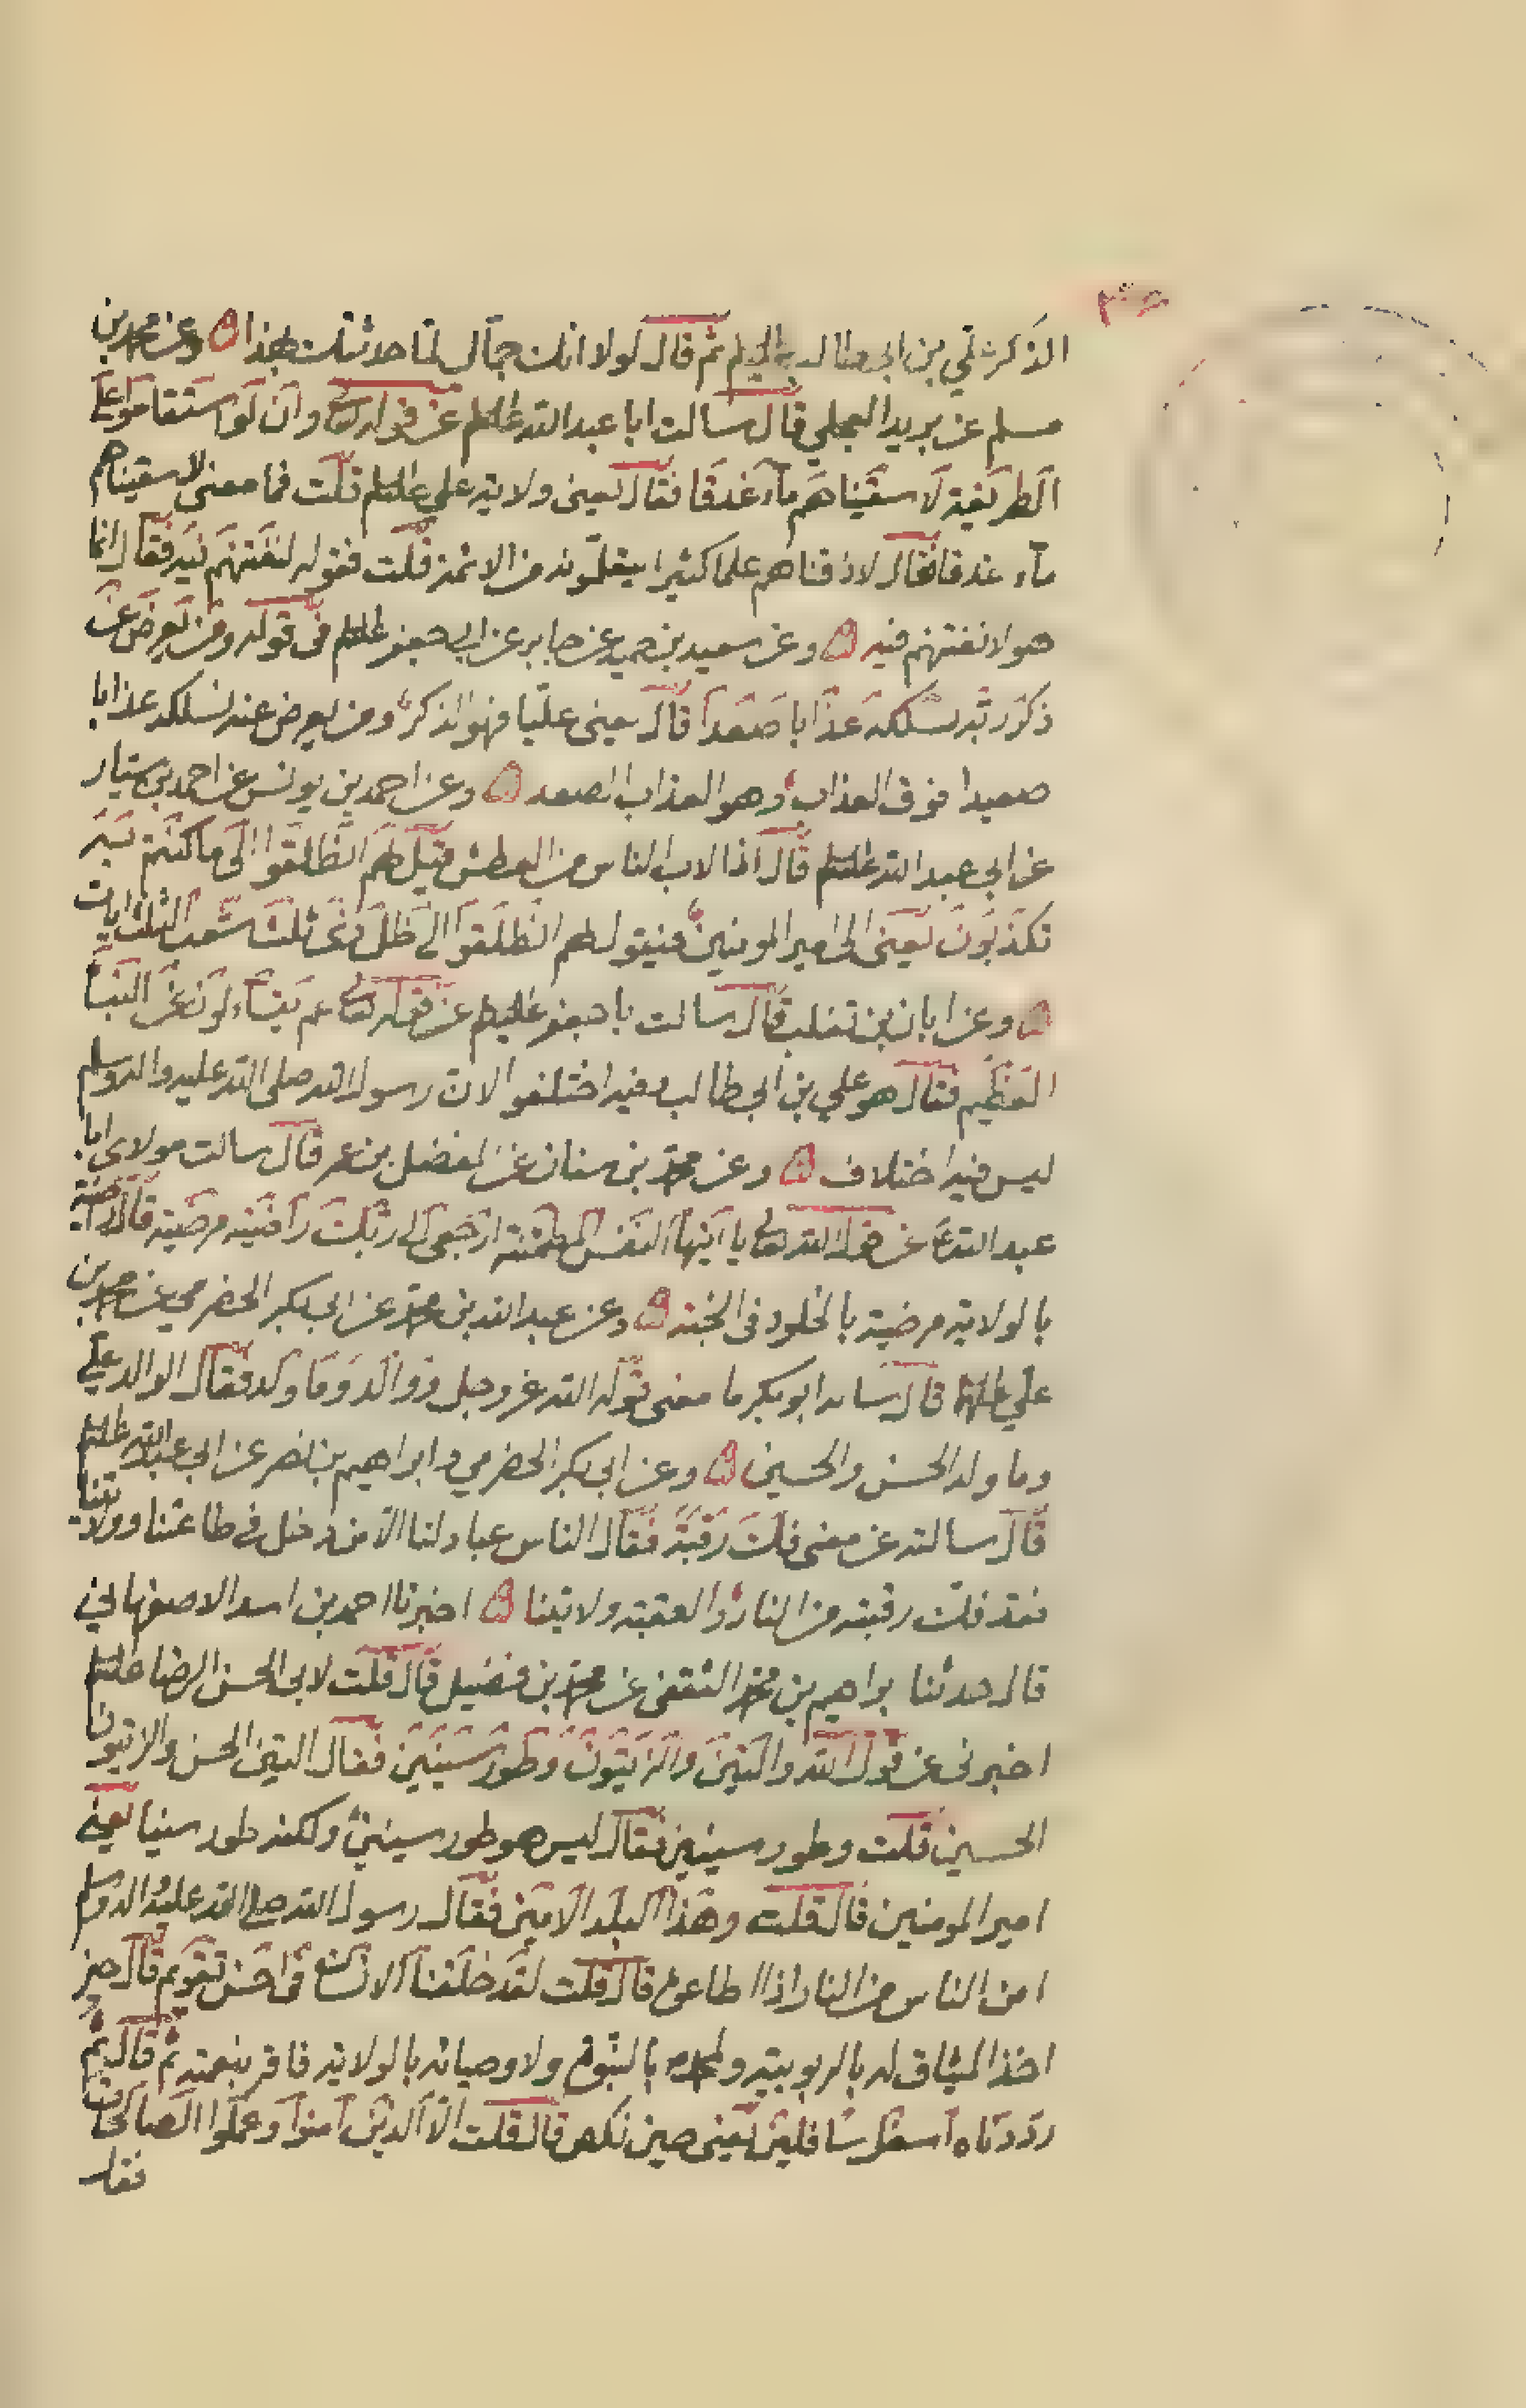 الذكر علي بن ابي طالب عليه السلم ثم قال لولا انك جمال لما حدثتك بهذا ۞ وعن محمد بن
مسلم عن بريد العجلي قال سالت ابا عبد الله عليه السلم عن قوله تعالى وان لو استقاموا على
الطريقة لاسقيناهم مآء غدقا فقال يعني ولاية علي عليه السلم قلت فما معنى لاسقيناهم
مآء غدقا فقال لاذقناهم علما كثيرا يتعلمونه من الائمة قلت فقوله لنفتنهم فيه فقال انما
هو لا نفتنهم فيه ۞ وعن سعيد بن حميد عن جابر عن ابي جعفر عليه السلم في قوله ومن يعرض عن
ذكر ربه نسلكه عذابا صعدا قال يعني عليا فهو الذكر ومن يعرض عنه نسلكه عذابا
صعيدا فوق العذاب وهو العذاب الصعد ۞ وعن احمد بن يونس عن احمد بن سيار
عن ابي عبد الله عليه السلم قال اذا لاب الناس من العطش قيل لهم انطلقوا الى ما كنتم به
تكذبون يعني الى امير المومنين فيقول لهم انطلقوا الى ظل ذى ثلث شعب الثلث ايات
۞ وعن ابان بن تغلب قال سالت ابا جعفر عليه السلم عن قوله تعالى عم يتساءلون عن النبأ
العظيم فقال هو علي بن ابي طالب وفيه اختلفوا لان رسول الله صلى الله عليه واله وسلم
ليس فيه اختلاف ۞ وعن محمد بن سنان عن المفضل بن عمر قال سالت مولاى ابا
عبد الله ع عن قول الله تعالى يا ايتها النفس المطمئنة ارجعي الى ربك راضية مرضية قال راضية
بالولاية مرضية بالخلود في الجنة ۞ وعن عبد الله بن محمد عن ابي بكر الحضرمي عن محمد بن
علي عليهما السلم قال ساله ابو بكر ما معنى قول الله عز وجل ووالد وما ولد فقال الوالد علي
وما ولد الحسن والحسين ۞ وعن ابي بكر الحضرمي وابراهيم بن نضر عن ابي عبد الله عليه السلم
قال سالته عن معنى فك رقبة فقال الناس عباد لنا الا من دخل في طاعتنا وولايتنا
فقد فك رقبته من النار والعقبة ولايتنا ۞ اخبرنا احمد بن اسد الاصفهاني
قال حدثنا ابراهيم بن محمد الثقفي عن محمد بن فضيل قال قلت لابي الحسن الرضا عليه السلم
اخبرني عن قول الله والتين والزيتون وطور سينين فقال التين الحسن والزيتون
الحسين قلت وطور سينين فقال ليس هو طور سينين ولكنه طور سينا يعني
امير المومنين قال قلت وهذا البلد الامين فقال رسول الله صلى الله عليه واله وسلم
امن الناس من النار اذا اطاعوه قال قلت لقد خلقنا الانسان في احسن تقويم قال حين
اخذ الميثاق له بالربوبية ولمحمد بالنبوة ولاوصيائه بالولاية فاقر بنعمته ثم قال ثم
رددناه اسفل سافلين يعني حين نكص قال قلت الا الذين آمنوا وعملوا الصالحات
فقال